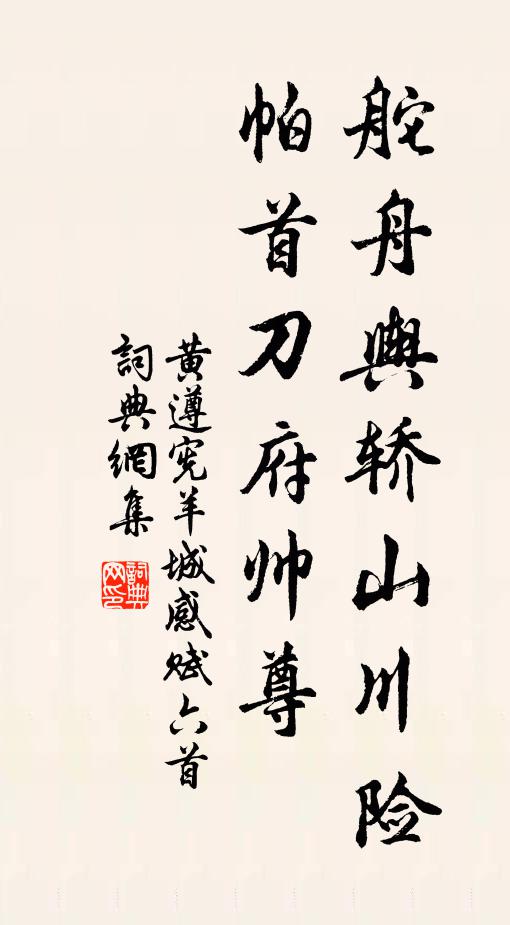 舵舟舆轿山川险
帕首刀府帅尊
黄遵宪羊城感赋六首
詞典網集
詞典网印